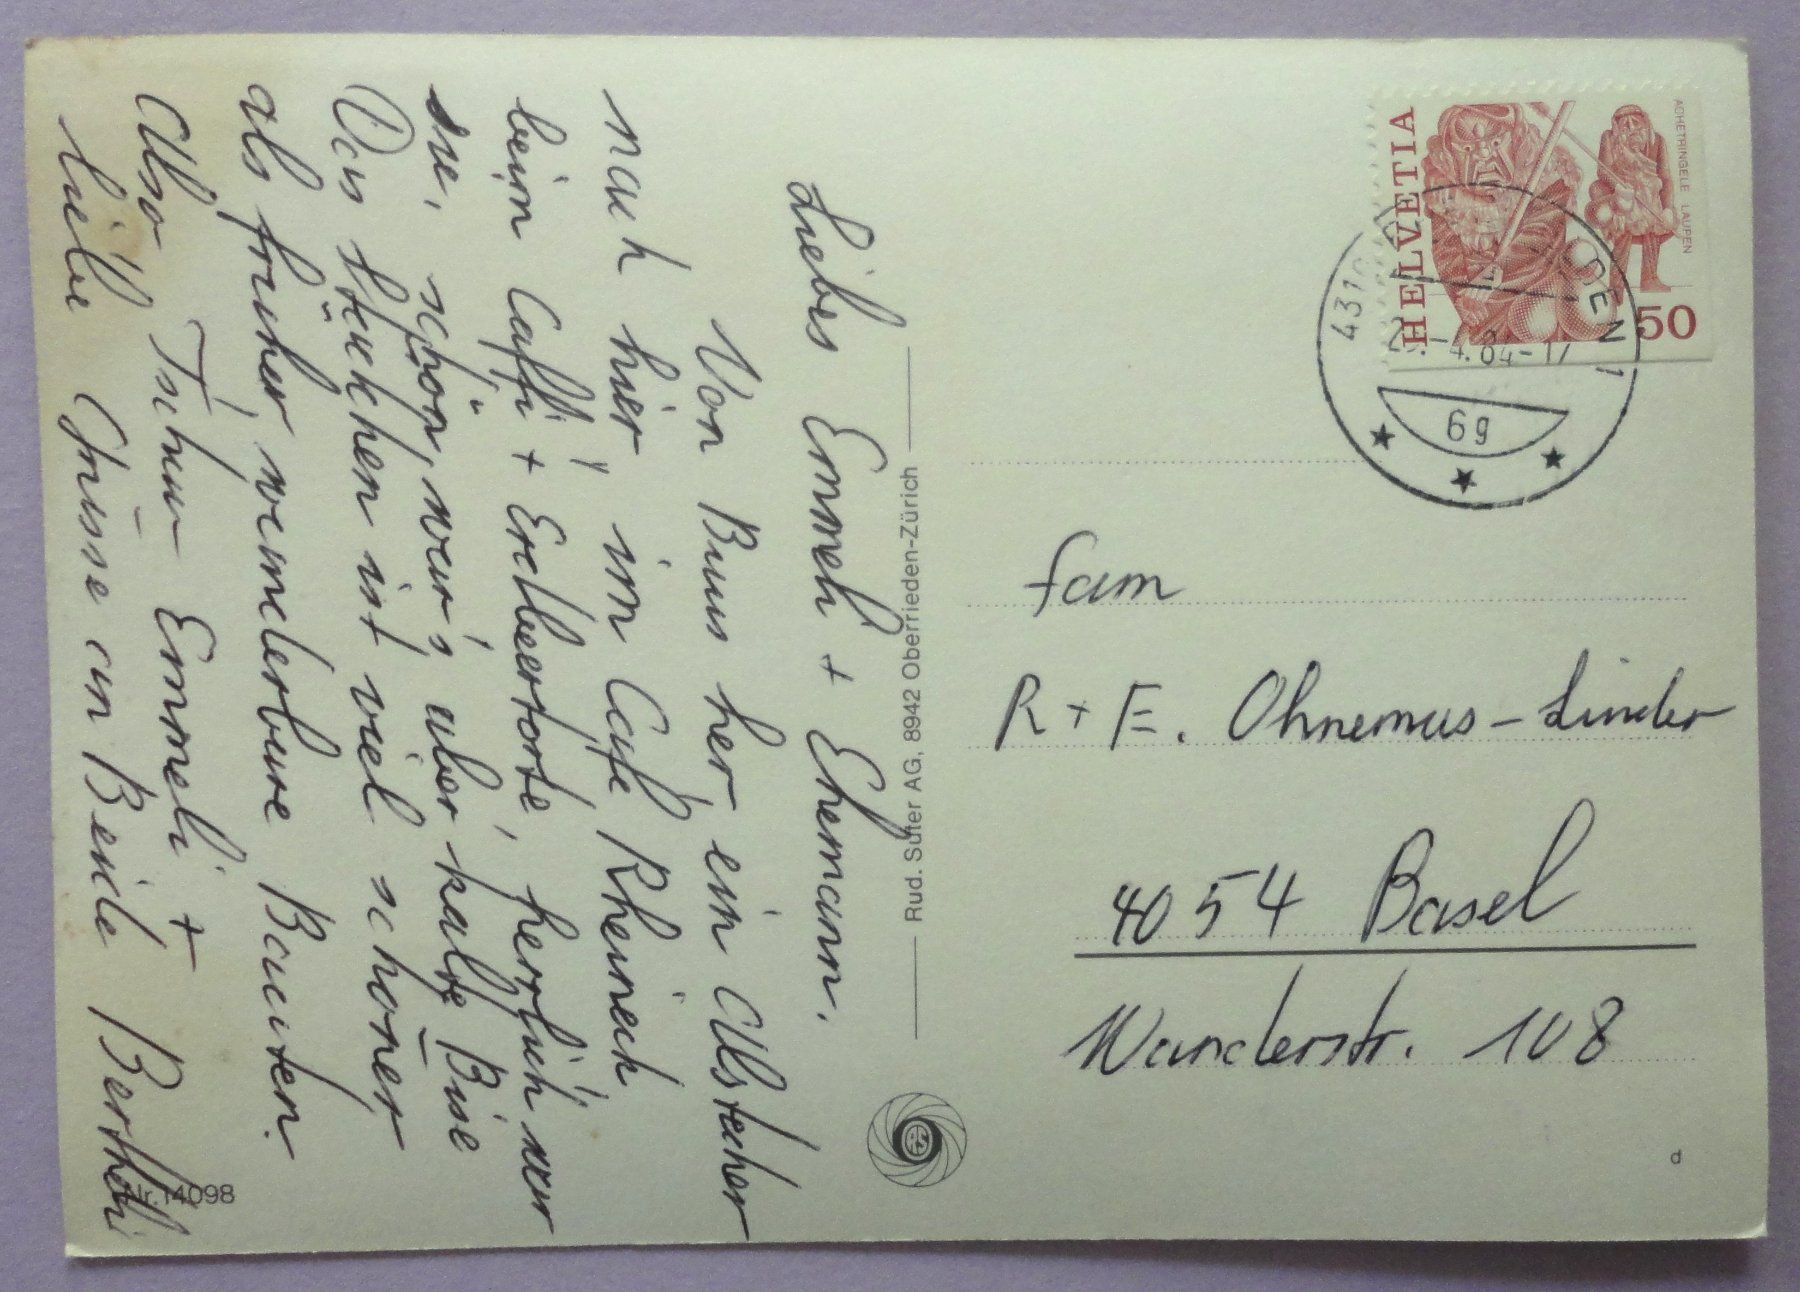 Liebes Emmeli + Ehemann.
Von Buus her, ein Abstecher
nach hier, im Café Rheineck
beim Caffi + Erdbeertorte, herrlich war
sie, schön war's, aber kalte Bise
Das Stückchen ist viel schöner
als früher, wunderbare Bauten.
Also Tschau Emmeli +
liebe Grüsse an Beide Berthti
Nr. 14098
Rud. Suter AG, 8942 Oberrieden-Zürich
HELVETIA
ACHETRINGELE LAUPEN
50
4310
DEN 1
-4.84-17
6g
RS
Fam
R + E. Ohnemus-Linder
4054 Basel
Wanderstr. 108
d